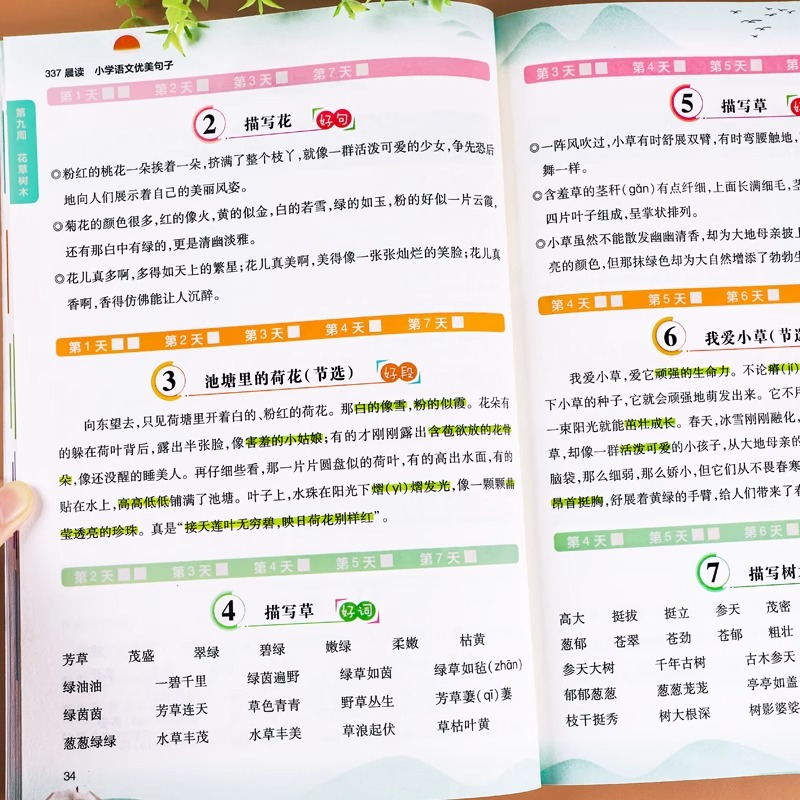 337 晨读 小学语文优美句子
第九周 花草树木
第1天 第2天 第3天 第7天
2 描写花 好句
◎粉红的桃花一朵挨着一朵,挤满了整个枝丫,就像一群活泼可爱的少女,争先恐后
地向人们展示着自己的美丽风姿。
◎菊花的颜色很多,红的像火,黄的似金,白的若雪,绿的如玉,粉的好似一片云霞,
还有那白中有绿的,更是清幽淡雅。
◎花儿真多啊,多得如天上的繁星;花儿真美啊,美得像一张张灿烂的笑脸;花儿真
香啊,香得仿佛能让人沉醉。
第1天 第2天 第3天 第4天 第7天
3 池塘里的荷花(节选) 好段
向东望去,只见荷塘里开着白的、粉红的荷花。那白的像雪,粉的似霞。花朵有
的躲在荷叶背后,露出半张脸,像害羞的小姑娘;有的才刚刚露出含苞欲放的花骨
朵,像还没醒的睡美人。再仔细些看,那一片片圆盘似的荷叶,有的高出水面,有的
贴在水上,高高低低铺满了池塘。叶子上,水珠在阳光下熠(yì)熠发光,像一颗颗晶
莹透亮的珍珠。真是“接天莲叶无穷碧,映日荷花别样红”。
第2天 第3天 第4天 第5天 第7天
4 描写草 好词
芳草 茂盛 翠绿 碧绿 嫩绿 柔嫩 枯黄
绿油油 一碧千里 绿茵遍野 绿草如茵 绿草如毡(zhān)
绿茵茵 芳草连天 草色青青 野草丛生 芳草萋(qī)萋
葱葱绿绿 水草丰茂 水草丰美 草浪起伏 草枯叶黄
34
第3天 第4天 第5天
5 描写草
◎一阵风吹过,小草有时舒展双臂,有时弯腰触地,
舞一样。
◎含羞草的茎秆(gǎn)有点纤细,上面长满细毛,茎
四片叶子组成,呈掌状排列。
◎小草虽然不能散发幽幽清香,却为大地母亲披上
亮的颜色,但那抹绿色却为大自然增添了勃勃生
第4天 第5天 第6天
6 我爱小草(节选
我爱小草,爱它顽强的生命力。不论瘠(jí)
下小草的种子,它就会顽强地萌发出来。它不用
一束阳光就能茁壮成长。春天,冰雪刚刚融化,
草,却像一群活泼可爱的小孩子,从大地母亲的
脑袋,那么细弱,那么娇小,但它们从不畏春寒
昂首挺胸,舒展着黄绿的手臂,给人们带来了春
第4天 第5天 第6天
7 描写树
高大 挺拔 挺立 参天 茂密
葱郁 苍翠 苍劲 苍郁 粗壮
参天大树 千年古树 古木参天
郁郁葱葱 葱葱茏茏 亭亭如盖
枝干挺秀 树大根深 树影婆娑